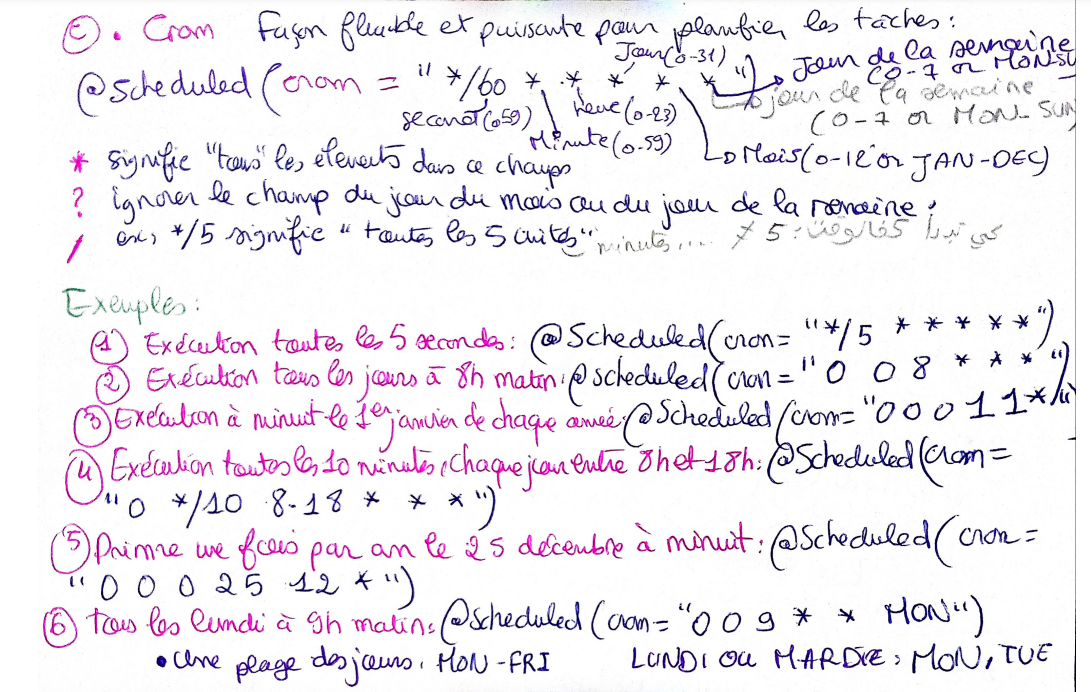 C. Cron Façon flexible et puissante pour planifier les tâches :
Jour(0-31)
@Scheduled(cron = "*/60 * * * * *") → Jour de la semaine
(0-7 or MONSU
jour de la semaine
(0-7 or MON-SUN
second(059) heure(0-23)
Minute(0-59) → Mois(0-12 or JAN-DEC)
* signifie "tous" les élements dans ce champs
? ignorer le champ du jour du mois ou du jour de la semaine.
/ ex, */5 signifie "toutes les 5 unités" minutes.... * 5 :
Exemples :
① Exécution toutes les 5 secondes : @Scheduled(cron= "*/5 * * * * *")
② Exécution tous les jours à 8h matin: @scheduled(cron = "0 0 8 * * *")
③ Exécution à minuit le 1er janvier de chaque année: @Scheduled(cron= "0 0 0 1 1 * ")
④ Exécution toutes les 10 minutes, chaque jour entre 8h et 18h: @Scheduled(cron=
"0 */10 8-18 * * *")
⑤ une fois par an le 25 décembre à minuit : @Scheduled(cron =
"0 0 0 25 12 * ")
⑥ tous les lundi à 9h matin: @Scheduled(cron= "0 0 9 * * MON")
• Une plage des jours: MON-FRI LUNDI OU MARDIE : MON, TUE